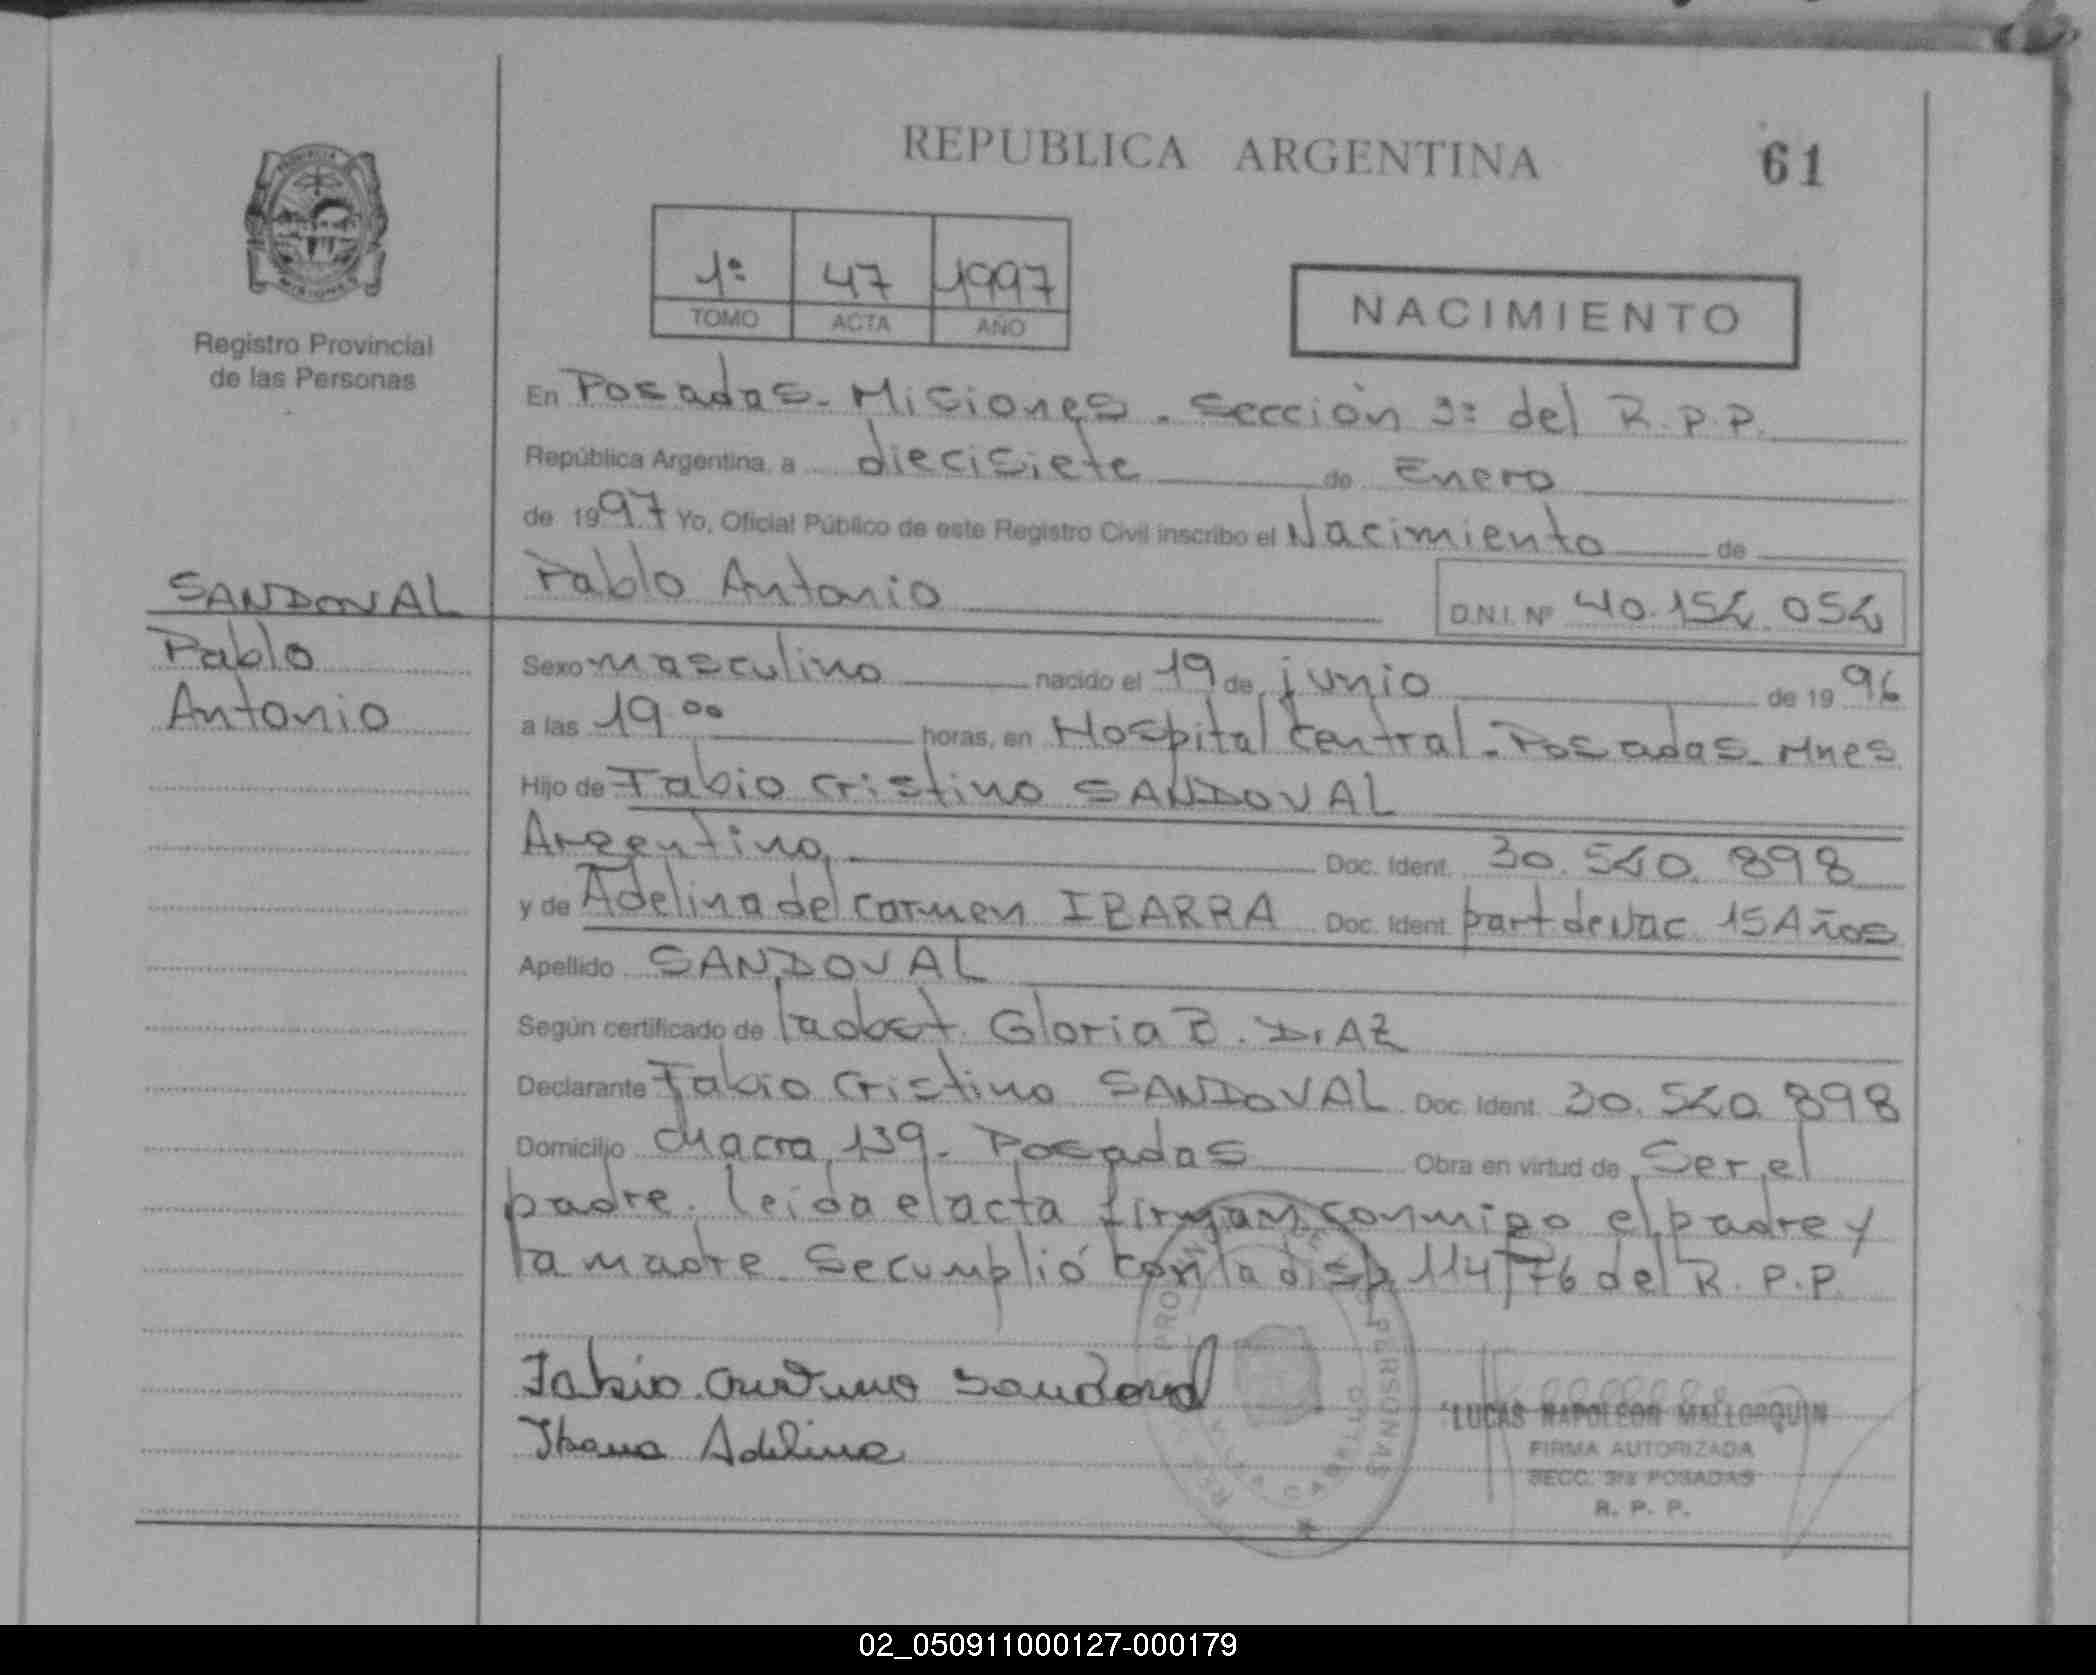 REPUBLICA ARGENTINA
61
PROVINCIA
MISIONES
Registro Provincial
de las Personas
1º 47 1997
TOMO ACTA AÑO
NACIMIENTO
En Posadas - Misiones - Sección 3ª del R.P.P.
República Argentina, a diecisiete de Enero
de 1997 Yo, Oficial Público de este Registro Civil inscribo el Nacimiento de
Pablo Antonio D.N.I. Nº 40.154.054
SANDOVAL
Pablo
Antonio
Sexo masculino nacido el 19 de junio de 1996
a las 19 00 horas, en Hospital Central - Posadas - Mnes
Hijo de Fabio Cristino SANDOVAL
Argentino Doc. Ident. 30.540.898
y de Adelina del Carmen IBARRA Doc. Ident. part de nac 15 Años
Apellido SANDOVAL
Según certificado de la obst. Gloria B. DIAZ
Declarante Fabio Cristino SANDOVAL Doc. Ident. 30.540.898
Domicilio Chacra 139 - Posadas Obra en virtud de Ser el
padre. leida el acta firman conmigo el padre y
la madre. Se cumplió con la disp 114/76 del R.P.P.
Fabio Cristino Sandoval
Ibarra Adelina
LUCAS NAPOLEON MALLORQUIN
FIRMA AUTORIZADA
SECC. 3ra POSADAS
R. P. P.
02_050911000127-000179